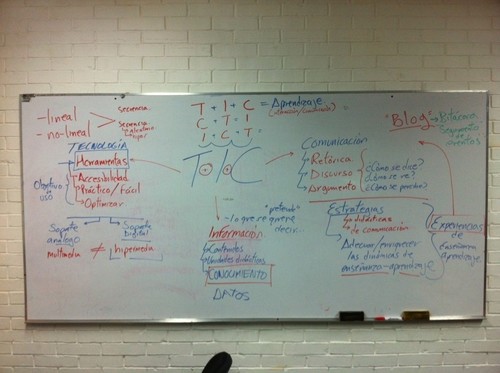 - lineal
- no-lineal
Secuencia
Secuencia
T + I + C = Aprendizaje
C + T + I
I + C + T =
TECNOLOGÍA
Herramientas
Objetivo de uso
Accesibilidad
Práctico / Fácil
Optimizar
Soporte análogo
Soporte Digital
multimedia ≠ hipermedia
T+I+C
"pretendo"
- lo que se quiere decir
Información
Contenidos
Unidades didácticas
CONOCIMIENTO
DATOS
Comunicación
Retórica
Discurso
Argumento
¿Cómo se dice?
¿Cómo se ve?
¿Cómo se prueba?
Estrategias
didácticas
de comunicación
Adecuar/enriquecer
las dinámicas de
enseñanza-aprendizaje
"Blog"
Bitácora
de eventos
Experiencias
de
Enseñanza
Aprendizaje